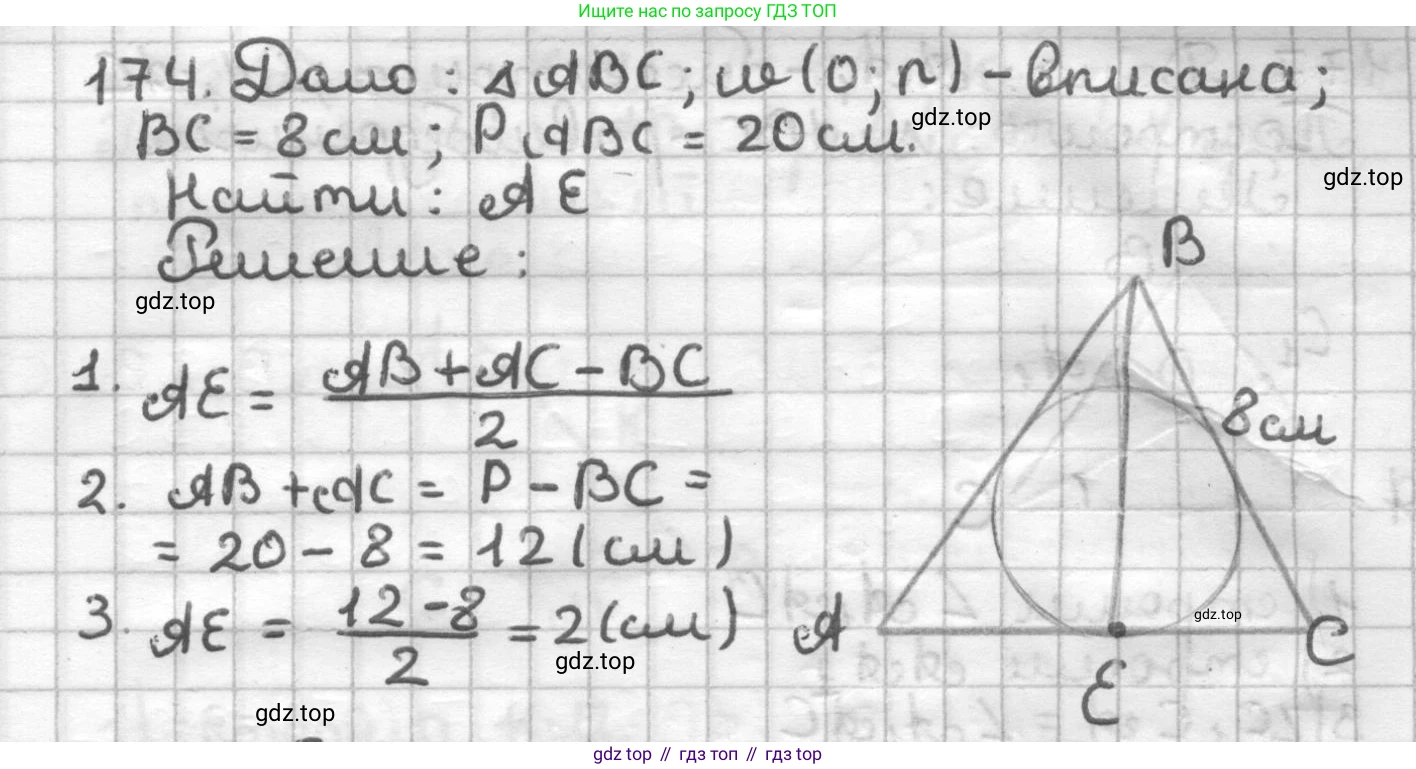 Ищите нас по запросу ГДЗ ТОП
174. Дано: △ABC; w(O; r) - вписана;
BC = 8 см; P△ABC = 20 см.
gdz.top
gdz.top
Найти: AE
Решение:
gdz.top
B
1. AE = (AB + AC - BC) / 2
8 см
2. AB + AC = P - BC =
= 20 - 8 = 12 (см)
3. AE = (12 - 8) / 2 = 2 (см)
gdz.top
A
gdz.top
C
E
gdz.top
gdz top // гдз топ // гдз top